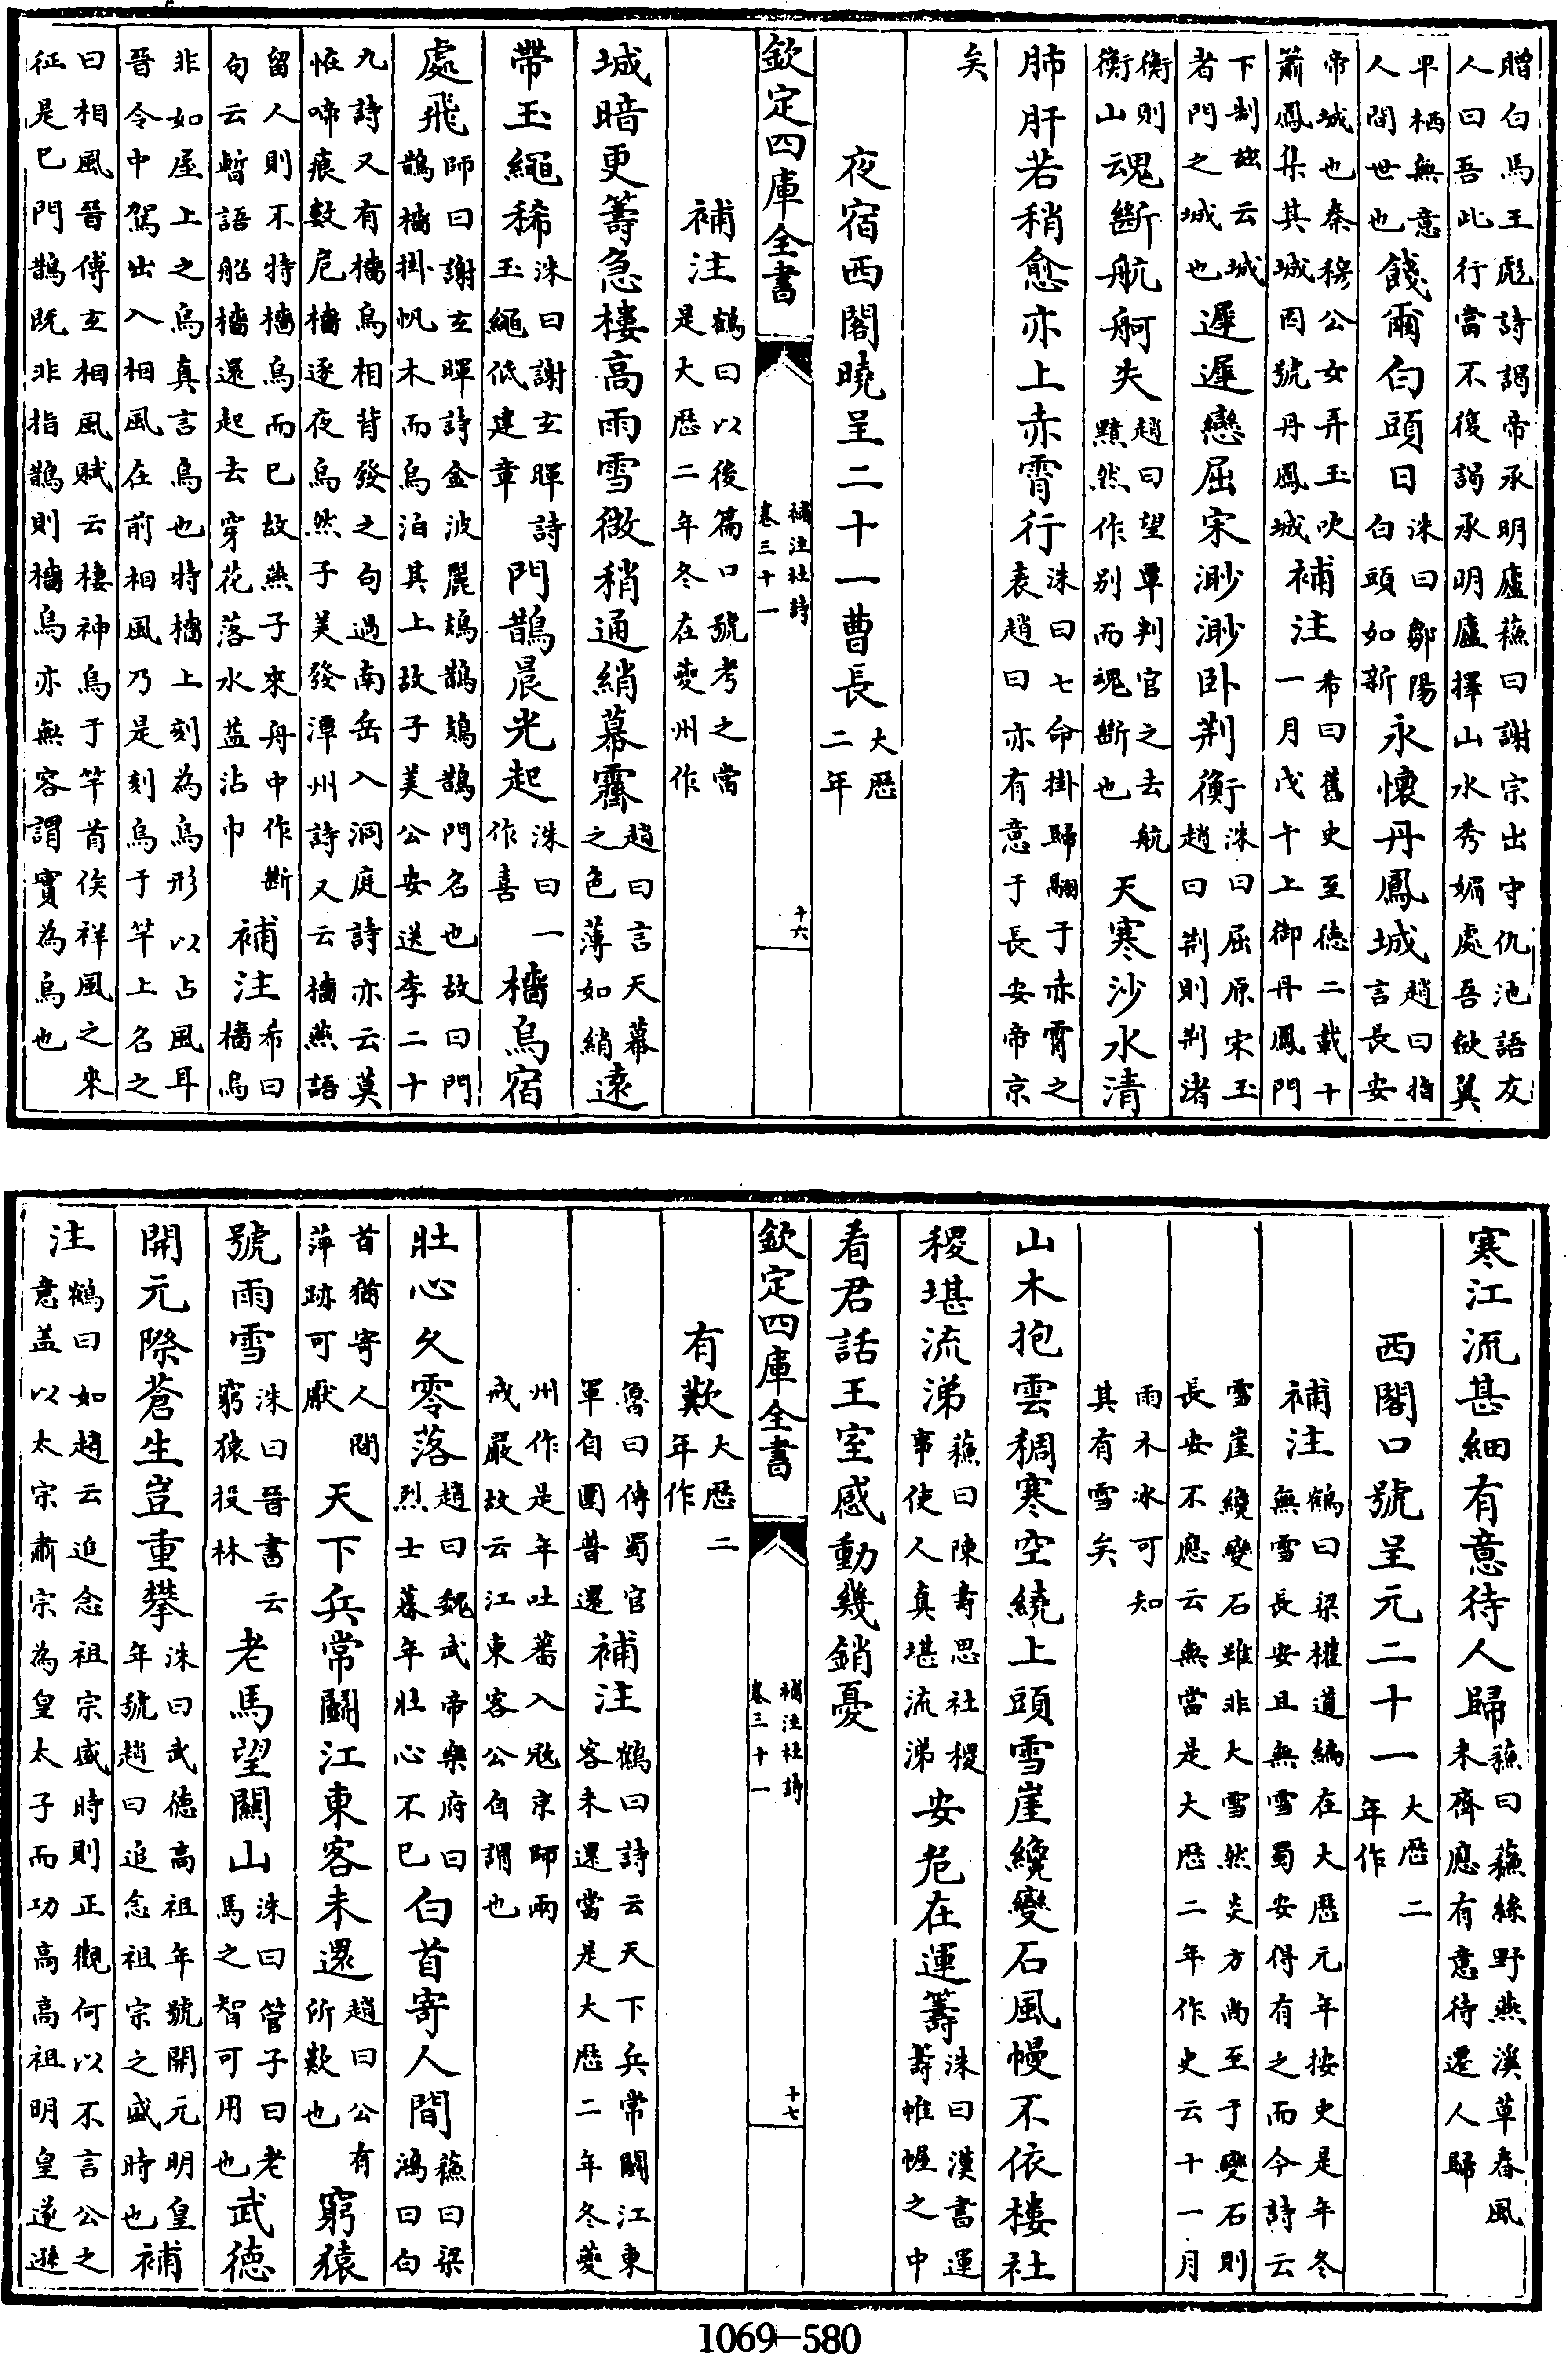 贈白馬王彪詩謁帝承明廬蘓曰謝宗出守仇池語友
人曰吾此行當不復謁承明廬擇山水秀媚處吾斂翼
平栖無意人間世也餞爾白頭日洙曰鄒陽白頭如新永懷丹鳳城趙曰指言長安
帝城也秦穆公女弄玉吹簫鳳集其城因號丹鳳城補注希曰舊史至德二載十一月戊午上御丹鳳門
下制玆云城者門之城也遲遲戀屈宋渺渺卧荆衡洙曰屈原宋玉趙曰荆則荆渚
衡則衡山魂斷航舸失趙曰望覃判官之去航黯然作别而魂斷也天寒沙水清
肺肝若稍愈亦上赤霄行洙曰七命掛歸翮于赤霄之表趙曰亦有意于長安帝京
矣
夜宿西閣曉呈二十一曹長大歴二年
欽定四庫全書 補注杜詩 卷三十一 十六
補注鶴曰以後篇口號考之當是大歴二年冬在夔州作
城暗更籌急樓高雨雪微稍通綃幕霽趙曰言天幕之色薄如綃遠
帶玉繩稀洙曰謝玄暉詩玉繩低建章門鵲晨光起洙曰一作喜檣烏宿
處飛師曰謝玄暉詩金波麗鳷鵲鳷鵲門名也故曰門鵲檣掛帆木而烏泊其上故子美公安送李二十
九詩又有檣烏相背發之句過南岳入洞庭詩亦云莫
恠啼痕數危檣逐夜烏然子美發潭州詩又云檣燕語
留人則不特檣烏而已故燕子來舟中作斷句云暫語船檣還起去穿花落水益沾巾補注希曰檣烏
非如屋上之烏真言烏也特檣上刻為烏形以占風耳
晉令中駕出入相風在前相風乃是刻烏于竿上名之
曰相風晉傅玄相風賦云棲神烏于竿首俟祥風之來
征是已門鵲既非指鵲則檣烏亦無容謂實為烏也
寒江流甚細有意待人歸蘓曰蘓綠野燕溪草春風未齊應有意待遷人歸
西閣口號呈元二十一大歴二年作
補注鶴曰梁權道編在大歴元年按史是年冬無雪長安且無雪蜀安得有之而今詩云
雪崖纔變石雖非大雪然炎方尚至于變石則
長安不應云無當是大歴二年作史云十一月
雨木冰可知其有雪矣
山木抱雲稠寒空繞上頭雪崖纔變石風幔不依樓社
稷堪流涕蘓曰陳壽思社稷事使人真堪流涕安危在運籌洙曰漢書運籌帷幄之中
看君話王室感動幾銷憂
欽定四庫全書 補注杜詩 卷三十一 十七
有歎大歴二年作
魯曰傅蜀官軍自圍普還補注鶴曰詩云天下兵常鬭江東客未還當是大歴二年冬夔
州作是年吐蕃入冦京師兩戒嚴故云江東客公自謂也
壯心久零落趙曰魏武帝樂府曰烈士暮年壯心不已白首寄人間蘓曰梁鴻曰白
首猶寄人間萍跡可厭天下兵常鬭江東客未還趙曰公有所歎也窮猿
號雨雪洙曰晉書云窮猿投林老馬望關山洙曰管子曰老馬之智可用也武德
開元際蒼生豈重攀洙曰武德高祖年號開元明皇年號趙曰追念祖宗之盛時也補
注鶴曰如趙云追念祖宗盛時則正觀何以不言公之意盖以太宗肅宗為皇太子而功高高祖明皇遂遜
1069—580